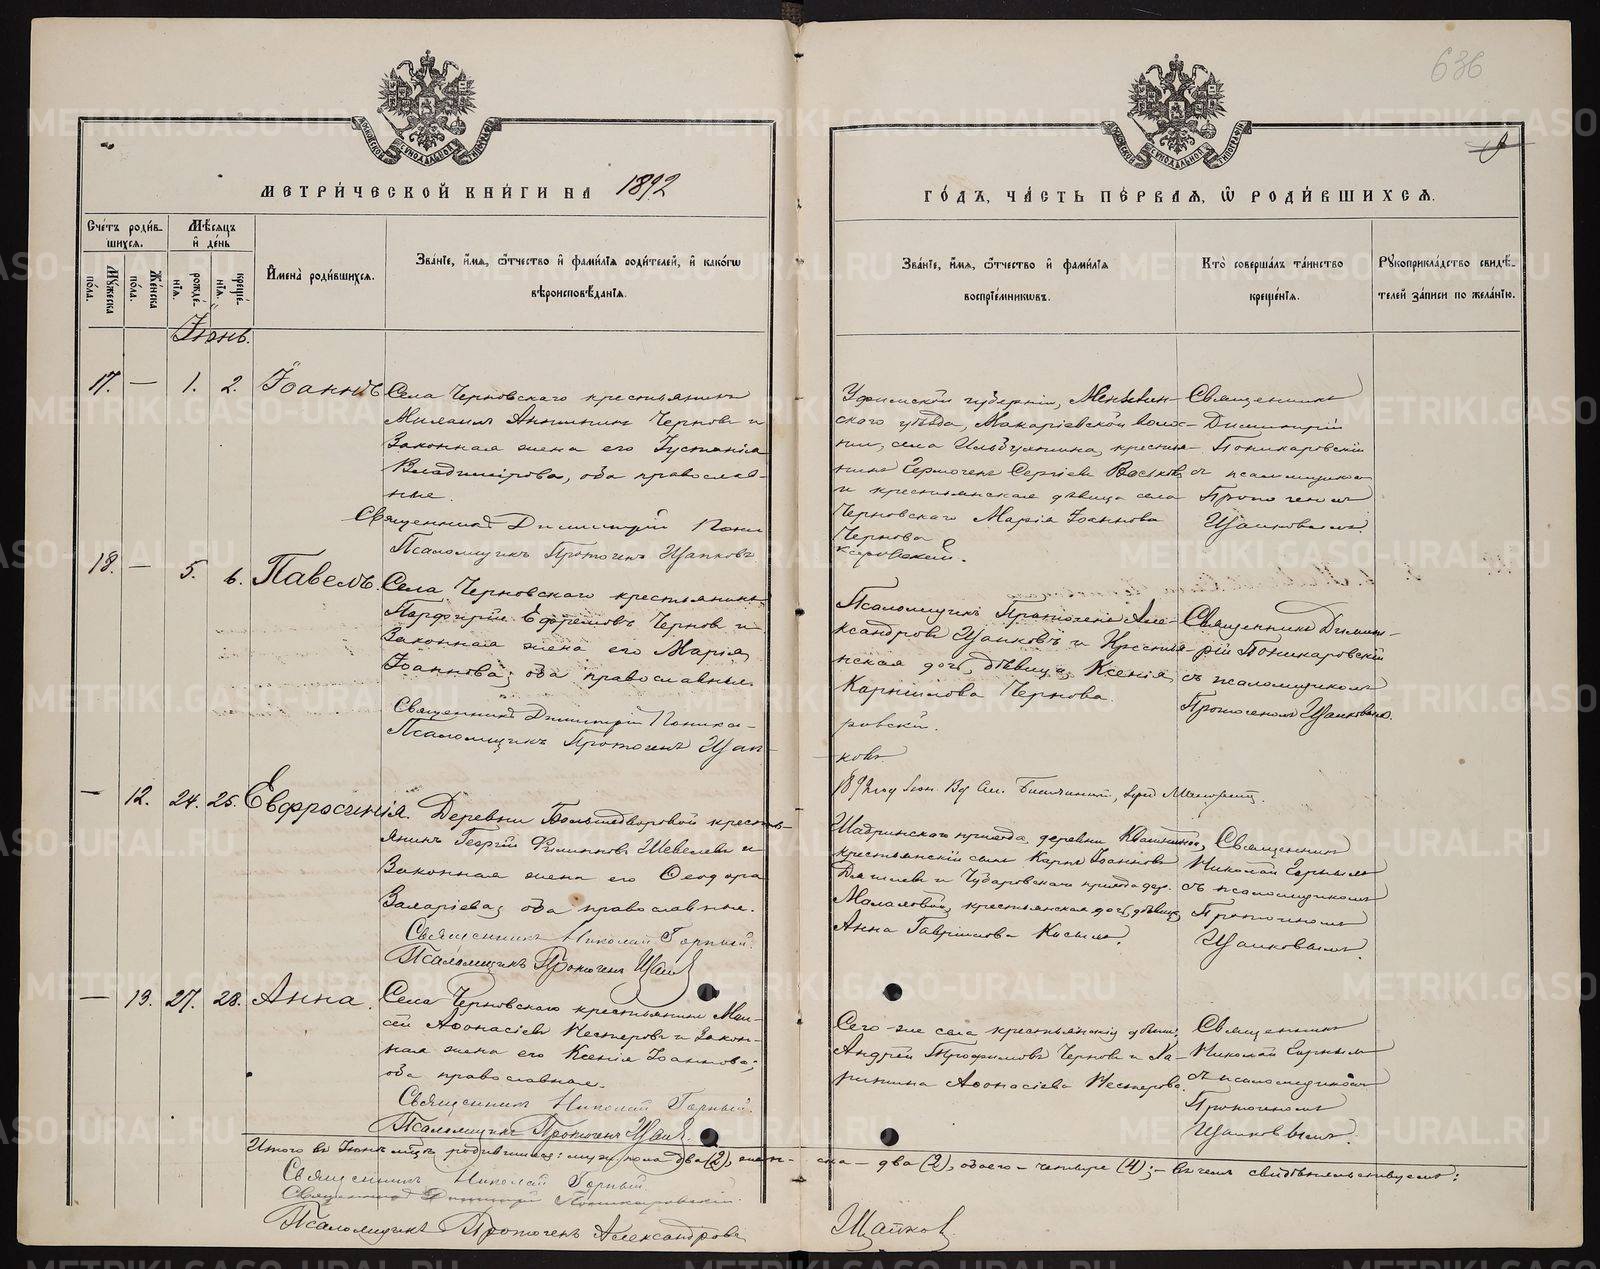 636
МЕТРИЧЕСКОЙ КНИГИ НА 1892
ГОДЪ, ЧАСТЬ ПЕРВАЯ, Ѡ РОДИВШИХСЯ.
Счетъ родив-
шихся.
Мѣсяцъ
и день
Имена родившихся.
Званіе, имя, отчество и фамилія родителей, и какого
вѣроисповѣданія.
Званіе, имя, отчество и фамилія
воспріемниковъ.
Кто совершалъ таинство
крещенія.
Рукоприкладство свидѣ-
телей записи по желанію.
Мужеска пола.
Женска пола.
рожде-
нія.
креще-
нія.
Іюнь.
17. — 1. 2. Іоаннъ
Села Черновскаго крестьянинъ
Чернов и
законная жена его Іустинія
Владимірова, оба православ-
ные.
Священникъ Димитрій Пони-
Псаломщикъ Протогенъ Щапковъ
Уфимской губерніи, Мензелин-
скаго уѣзда, Макаріевской волос-
ти, села крестья-
нинъ Сергіевъ
и крестьянская дѣвица села
Черновскаго Марія Іоаннова
Чернова
каровскій.
Священникъ
Димитрій
Поникаровскій
съ псаломщикомъ
Протогеномъ
Щапковымъ
18. — 5. 6. Павелъ.
Села Черновскаго крестьянинъ
Парфирій Ефремовъ Чернов и
законная жена его Марія
Іоаннова; оба православные.
Священникъ Димитрій Поника-
Псаломщикъ Протогенъ Щап-
Псаломщикъ Протогенъ Але-
ксандровъ Щапковъ и крестья-
нская дочь, дѣвица Ксенія
Карпилова Чернова.
ровскій.
ковъ.
Священникъ Димит-
рій Поникаровскій
съ псаломщикомъ
Протогеномъ Щапковымъ.
— 12. 24. 25. Евфросинія.
Деревни Большедворовой кресть-
янинъ Георгій Филипповъ Шевелевъ и
законная жена его Ѳеодора
Захаріева; оба православные.
Священникъ Николай Горный.
Псаломщикъ Протогенъ Щап
1892 год
Шадринскаго прихода деревни
крестьянскій сынъ Карпъ Іоанновъ
и Чубаровскаго прихода дер.
крестьянская дочь, дѣвица
Анна Гавриилова
Священникъ
Николай Горный
съ псаломщикомъ
Протогеномъ
Щапковымъ.
— 13. 27. 28. Анна.
Села Черновскаго крестьянинъ Мои-
сей Аѳонасіевъ Нестеровъ и закон-
ная жена его Ксенія Іоаннова;
оба православные.
Священникъ Николай Горный.
Псаломщикъ Протогенъ Щап
Сего же села крестьянскіе
Андрей Трофимовъ Черновъ и Ха-
ритина Аѳонасіева Нестерова.
Священникъ
Николай Горный
съ псаломщикомъ
Протогеномъ
Щапковымъ.
Итого въ Іюнѣ м-цѣ родившихся: муж. пола два (2), жен- ска — два (2), обоего — четыре (4); — въ чемъ свидѣтельствуемъ:
Священникъ Николай Горный
Священникъ Димитрій Поникаровскій.
Псаломщикъ Протогенъ Александровъ Щапковъ
METRIKI.GASO-URAL.RU